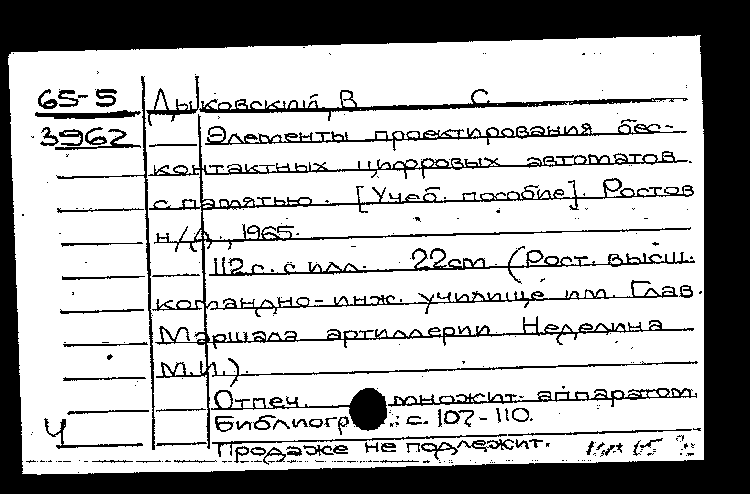 65-5 Дыковский, В С
3962 Элементы проектирования бес-
контактных цифровых автоматов
с памятью. [Учеб. пособие]. Ростов
н/Д., 1965.
112 с. с илл. 22 см (Рост. высш.
командно-инж. училище им. Глав.
Маршала артиллерии Неделина
М.И.).
Отпеч. множит. аппаратом.
Библиогр.: с. 107-110.
Ч
Продаже не подлежит.